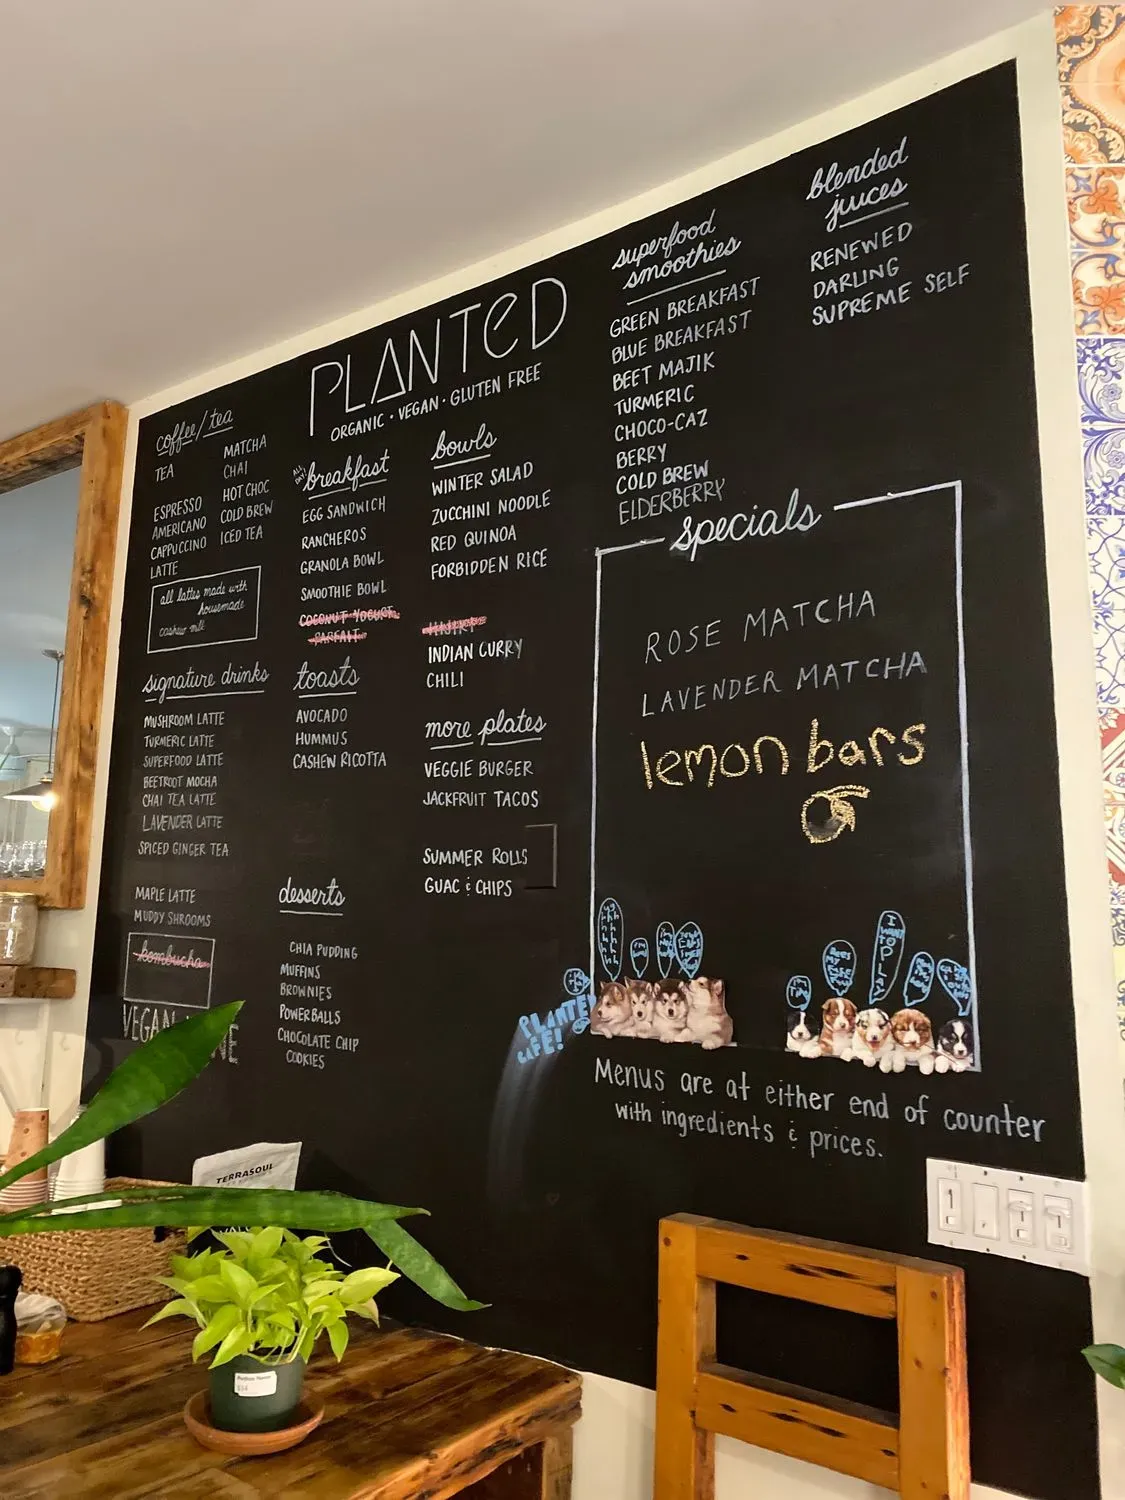 PLANTED
ORGANIC • VEGAN • GLUTEN FREE
coffee/tea
TEA
ESPRESSO
AMERICANO
CAPPUCCINO
LATTE
MATCHA
CHAI
HOT CHOC
COLD BREW
ICED TEA
all lattes made with
housemade
cashew milk
signature drinks
MUSHROOM LATTE
TURMERIC LATTE
SUPERFOOD LATTE
BEETROOT MOCHA
CHAI TEA LATTE
LAVENDER LATTE
SPICED GINGER TEA
MAPLE LATTE
MUDDY SHROOMS
kombucha
VEGAN
ALL
DAY!
breakfast
EGG SANDWICH
RANCHEROS
GRANOLA BOWL
SMOOTHIE BOWL
COCONUT YOGURT
PARFAIT
toasts
AVOCADO
HUMMUS
CASHEW RICOTTA
desserts
CHIA PUDDING
MUFFINS
BROWNIES
POWERBALLS
CHOCOLATE CHIP
COOKIES
bowls
WINTER SALAD
ZUCCHINI NOODLE
RED QUINOA
FORBIDDEN RICE
INDIAN CURRY
CHILI
more plates
VEGGIE BURGER
JACKFRUIT TACOS
SUMMER ROLLS
GUAC & CHIPS
superfood
smoothies
GREEN BREAKFAST
BLUE BREAKFAST
BEET MAJIK
TURMERIC
CHOCO-CAZ
BERRY
COLD BREW
ELDERBERRY
blended
juices
RENEWED
DARLING
SUPREME SELF
specials
ROSE MATCHA
LAVENDER MATCHA
lemon bars
I WANT TO PLAY
PLANTED
CAFE!
Menus are at either end of counter
with ingredients & prices.
TERRASOUL